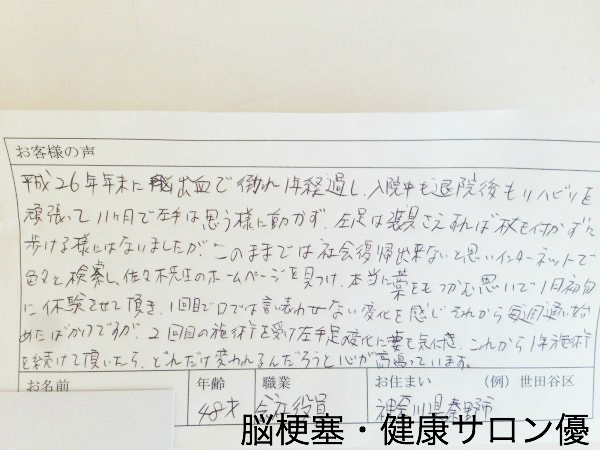 お客様の声
平成26年年末に脳出血で倒れ1年経過し、入院中も退院後もリハビリを
頑張って11ヶ月で左手は思う様に動かず、左足は装具さえすれば杖も付かずに
歩ける様にはなりましたが、このままでは社会復帰出来ないと思いインターネットで
色々と検索し、佐々木先生のホームページを見つけ、本当に藁をもつかむ思いで1月初旬
に体験させて頂き、1回目で口では言い表わせない変化を感じそれから毎週通い始
めたばかりですが、2回目の施術を受け左手足変化に妻も気付き、これから1年施術
を続けて頂いたら、どれだけ変われるんだろうと心が高鳴っています。
お名前 年齢 職業 お住まい (例)世田谷区
48才 会社役員 神奈川県秦野市
脳梗塞・健康サロン優